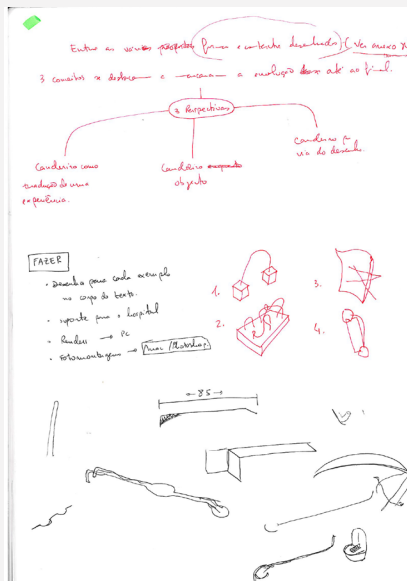 Entre as várias propostas (formas e contente desenhadas) (Ver anexo
3 conceitos se destacam e marcam a evolução até ao final.
3 Perspectivas
Candeeiro como
tradução de uma
experiência.
Candeeiro
objecto
Candeeiro
via do desenho
FAZER
• Desenho para cada exemplo
no corpo do texto.
• suporte para o hospital
• Renders → PC
• Fotomontagem → Mac / Photoshop
1.
2.
3.
4.
85